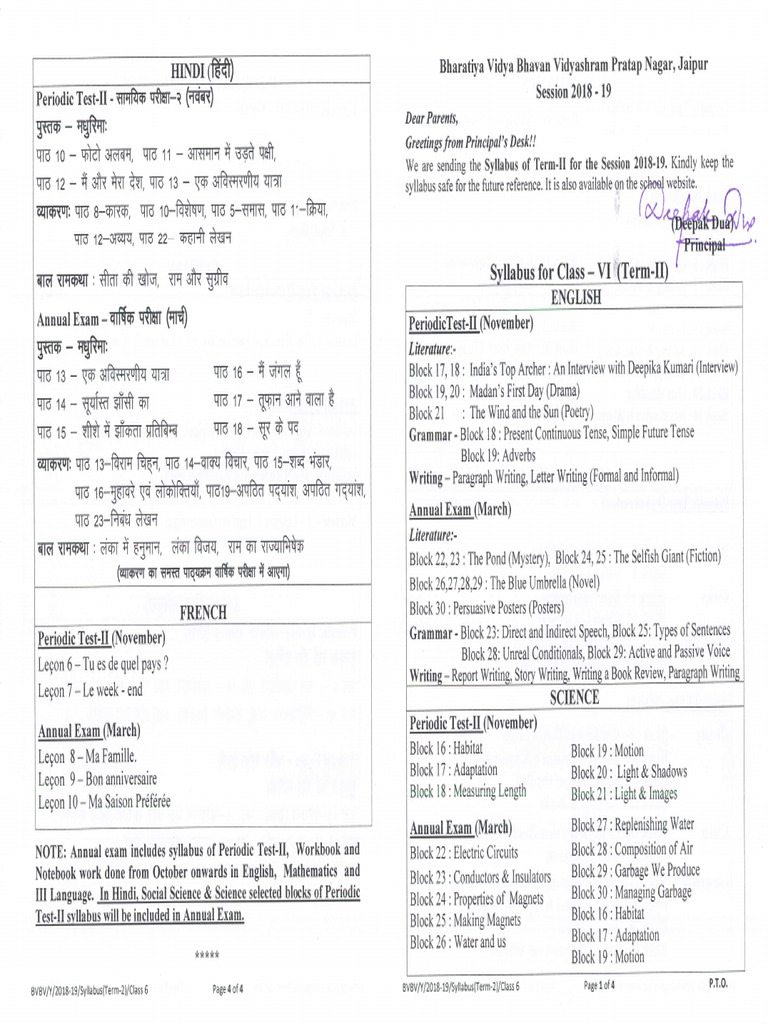 HINDI (हिंदी)
Periodic Test-II - सामयिक परीक्षा-२ (नवंबर)
पुस्तक – मधुरिमाः
पाठ 10 – फोटो अलबम, पाठ 11 – आसमान में उड़ते पक्षी,
पाठ 12 – मैं और मेरा देश, पाठ 13 – एक अविस्मरणीय यात्रा
व्याकरणः पाठ 8–कारक, पाठ 10–विशेषण, पाठ 5–समास, पाठ 11–क्रिया,
पाठ 12–अव्यय, पाठ 22– कहानी लेखन
बाल रामकथा : सीता की खोज, राम और सुग्रीव
Annual Exam – वार्षिक परीक्षा (मार्च)
पुस्तक – मधुरिमाः
पाठ 13 – एक अविस्मरणीय यात्रा पाठ 16 – मैं जंगल हूँ
पाठ 14 – सूर्यास्त झाँसी का पाठ 17 – तूफ़ान आने वाला है
पाठ 15 – शीशे में झाँकता प्रतिबिम्ब पाठ 18 – सूर के पद
व्याकरणः पाठ 13–विराम चिह्न, पाठ 14–वाक्य विचार, पाठ 15–शब्द भंडार,
पाठ 16–मुहावरे एवं लोकोक्तियाँ, पाठ19–अपठित पद्यांश, अपठित गद्यांश,
पाठ 23–निबंध लेखन
बाल रामकथा : लंका में हनुमान, लंका विजय, राम का राज्याभिषेक
(व्याकरण का समस्त पाठ्यक्रम वार्षिक परीक्षा में आएगा)
FRENCH
Periodic Test-II (November)
Leçon 6 – Tu es de quel pays ?
Leçon 7 – Le week - end
Annual Exam (March)
Leçon 8 – Ma Famille.
Leçon 9 – Bon anniversaire
Leçon 10 – Ma Saison Préférée
NOTE: Annual exam includes syllabus of Periodic Test-II, Workbook and
Notebook work done from October onwards in English, Mathematics and
III Language. In Hindi, Social Science & Science selected blocks of Periodic
Test-II syllabus will be included in Annual Exam.
*****
BVBV/Y/2018-19/Syllabus(Term-2)/Class 6 Page 4 of 4
Bharatiya Vidya Bhavan Vidyashram Pratap Nagar, Jaipur
Session 2018 - 19
Dear Parents,
Greetings from Principal's Desk!!
We are sending the Syllabus of Term-II for the Session 2018-19. Kindly keep the
syllabus safe for the future reference. It is also available on the school website.
Deepak Dua
(Deepak Dua)
Principal
Syllabus for Class – VI (Term-II)
ENGLISH
PeriodicTest-II (November)
Literature:-
Block 17, 18 : India's Top Archer : An Interview with Deepika Kumari (Interview)
Block 19, 20 : Madan's First Day (Drama)
Block 21 : The Wind and the Sun (Poetry)
Grammar - Block 18 : Present Continuous Tense, Simple Future Tense
Block 19: Adverbs
Writing – Paragraph Writing, Letter Writing (Formal and Informal)
Annual Exam (March)
Literature:-
Block 22, 23 : The Pond (Mystery), Block 24, 25 : The Selfish Giant (Fiction)
Block 26,27,28,29 : The Blue Umbrella (Novel)
Block 30 : Persuasive Posters (Posters)
Grammar - Block 23: Direct and Indirect Speech, Block 25: Types of Sentences
Block 28: Unreal Conditionals, Block 29: Active and Passive Voice
Writing – Report Writing, Story Writing, Writing a Book Review, Paragraph Writing
SCIENCE
Periodic Test-II (November)
Block 16 : Habitat
Block 17 : Adaptation
Block 18 : Measuring Length
Block 19 : Motion
Block 20 : Light & Shadows
Block 21 : Light & Images
Annual Exam (March)
Block 22 : Electric Circuits
Block 23 : Conductors & Insulators
Block 24 : Properties of Magnets
Block 25 : Making Magnets
Block 26 : Water and us
Block 27 : Replenishing Water
Block 28 : Composition of Air
Block 29 : Garbage We Produce
Block 30 : Managing Garbage
Block 16 : Habitat
Block 17 : Adaptation
Block 19 : Motion
BVBV/Y/2018-19/Syllabus(Term-2)/Class 6 Page 1 of 4 P.T.O.